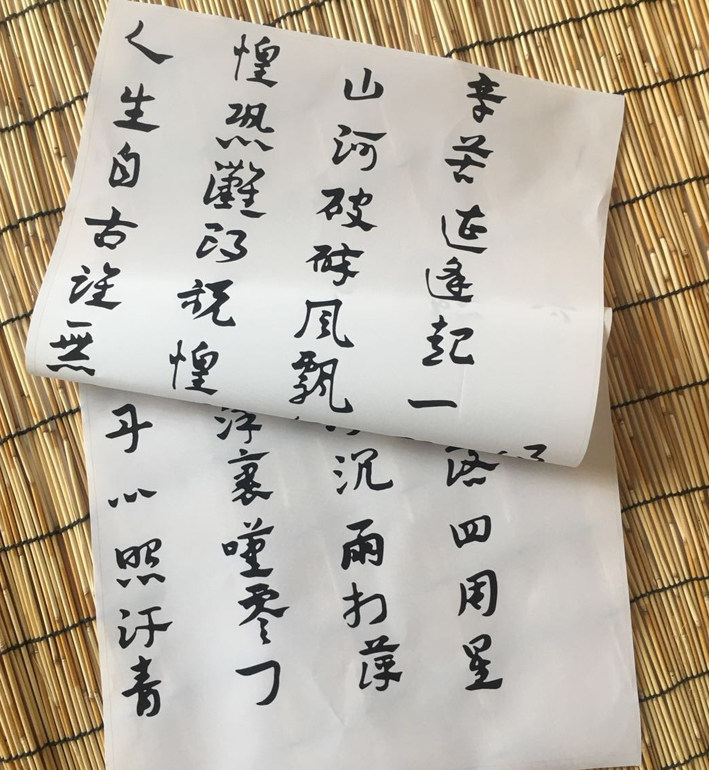 辛苦遭逢起一
山河破碎風飄
惶恐灘頭說惶
人生自古誰無
落四周星
沉雨打萍
洋裏嘆零丁
丹心照汗青